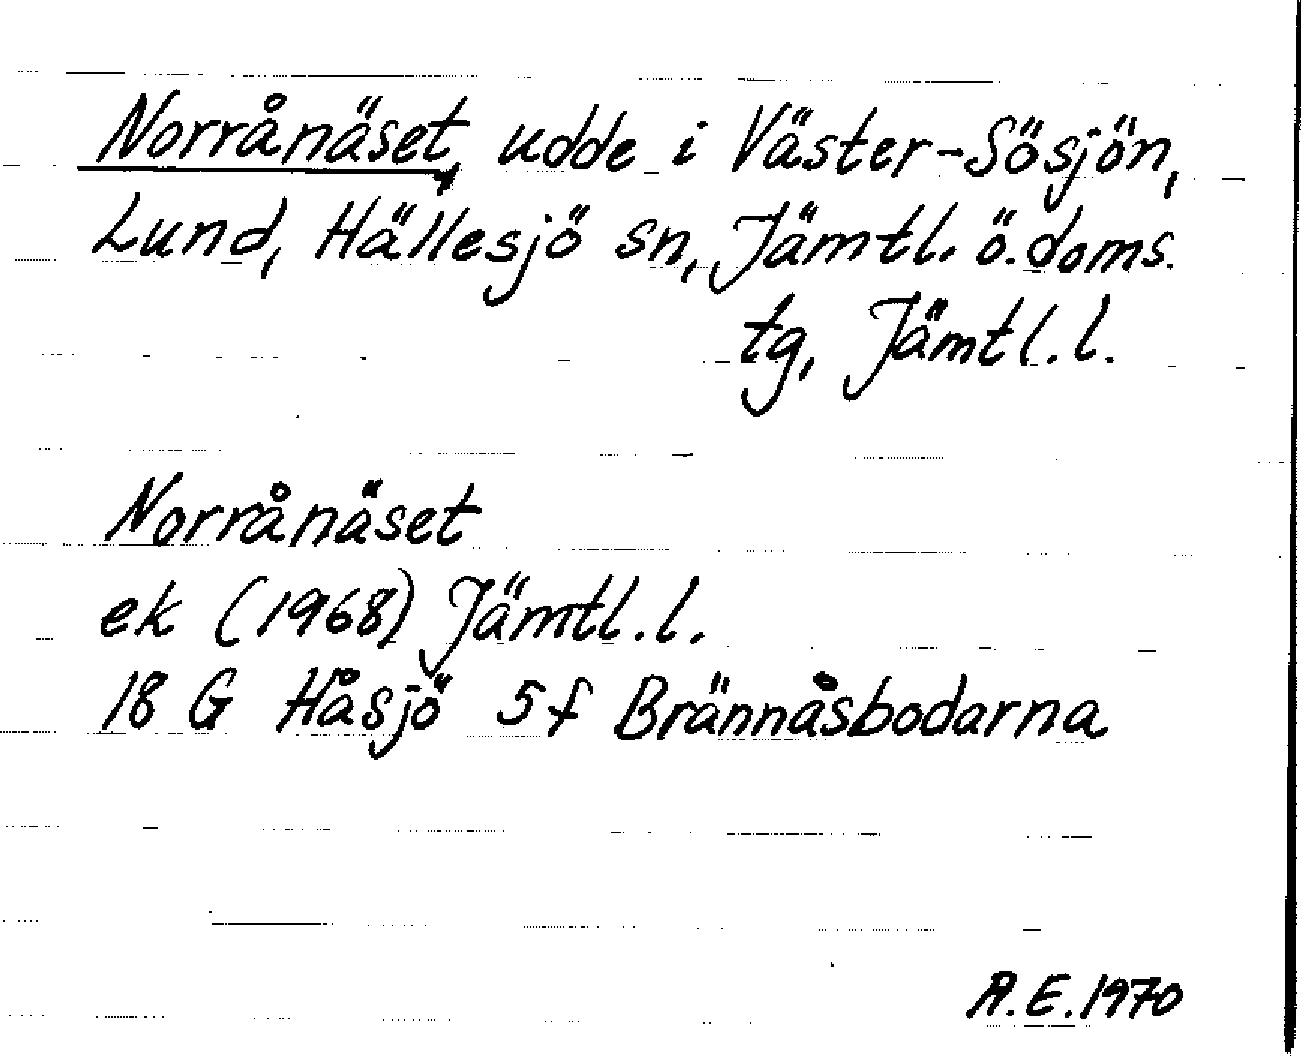 Norrånäset, udde i Väster-Sösjön,
Lund, Hällesjö sn, Jämtl. ö. doms.
tg, Jämtl. l.
Norrånäset
ek (1968) Jämtl. l.
18 G Håsjö 5 f Brännåsbodarna
A.E. 1970